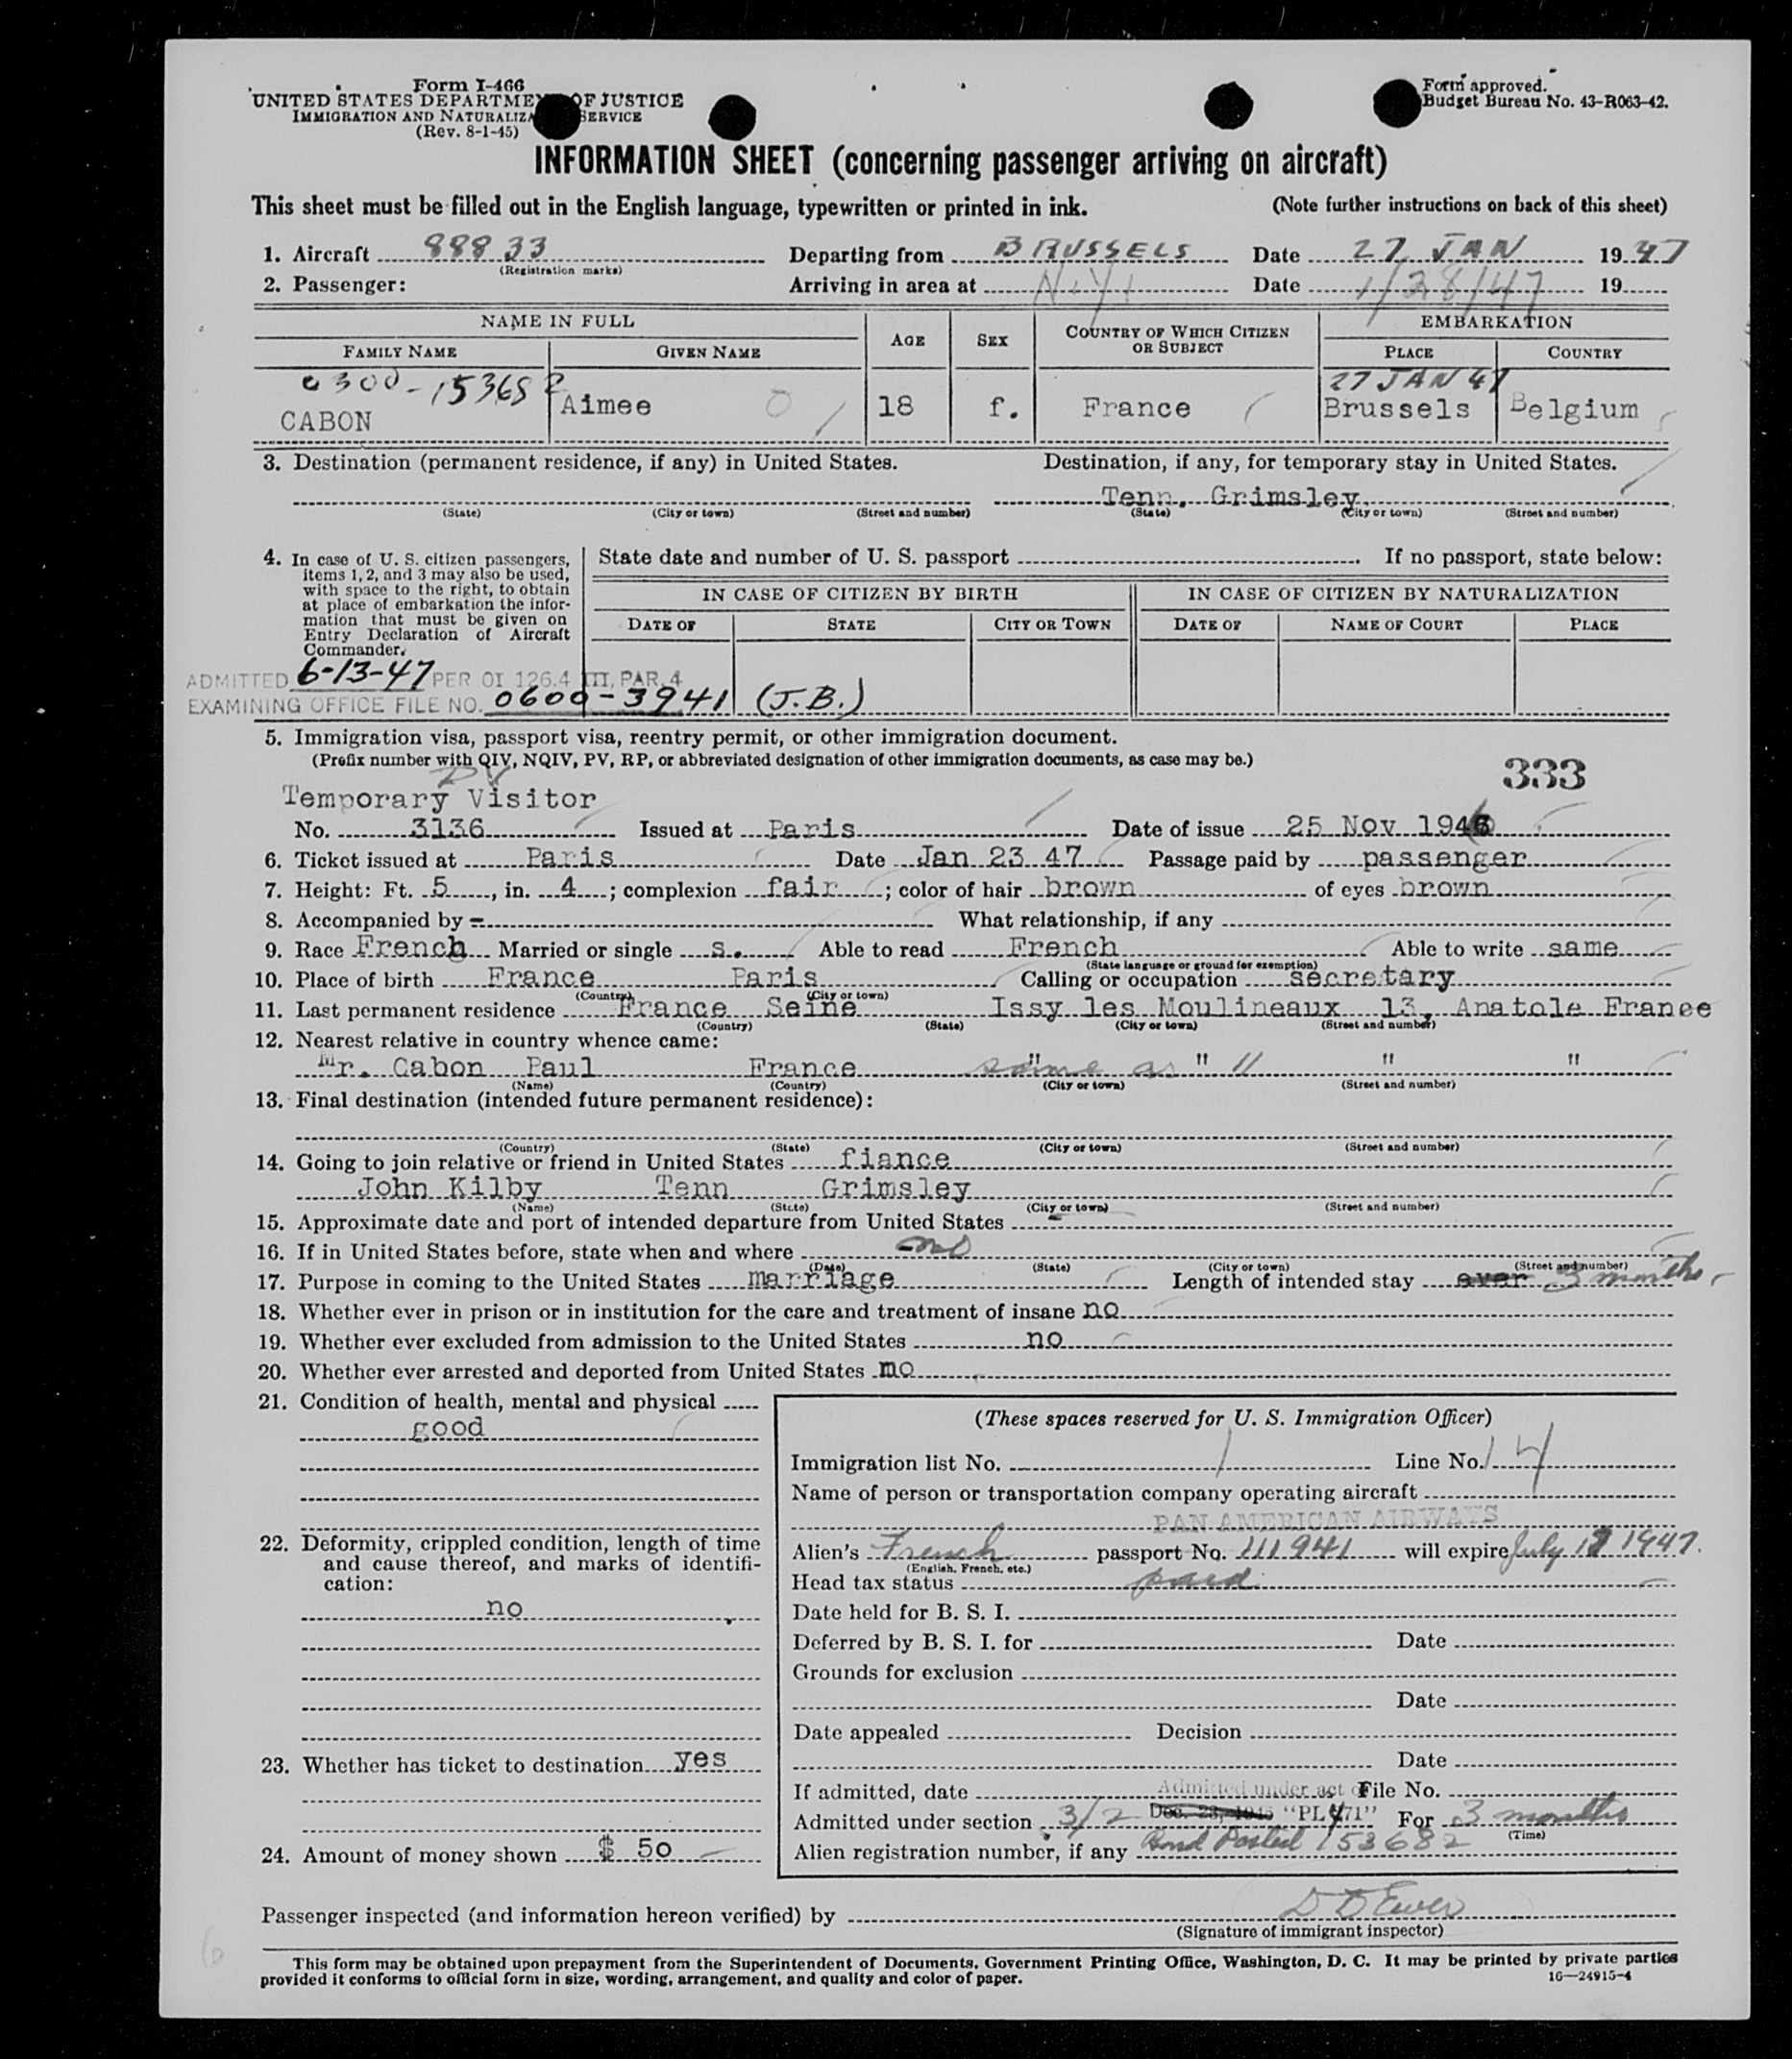 Form I-466
UNITED STATES DEPARTMENT OF JUSTICE
IMMIGRATION AND NATURALIZATION SERVICE
(Rev. 8-1-45)
Form approved.
Budget Bureau No. 43-R063-42.
INFORMATION SHEET (concerning passenger arriving on aircraft)
This sheet must be filled out in the English language, typewritten or printed in ink. (Note further instructions on back of this sheet)
1. Aircraft 88833 Departing from BRUSSELS Date 27 JAN 1947
(Registration marks)
2. Passenger: Arriving in area at N.Y. Date 1/28/47 19
NAME IN FULL AGE SEX COUNTRY OF WHICH CITIZEN OR SUBJECT EMBARKATION
FAMILY NAME GIVEN NAME PLACE COUNTRY
0300-153682 27 JAN 47
CABON Aimee 18 f. France Brussels Belgium
3. Destination (permanent residence, if any) in United States. Destination, if any, for temporary stay in United States.
Tenn. Grimsley
(State) (City or town) (Street and number) (State) (City or town) (Street and number)
4. In case of U. S. citizen passengers, items 1, 2, and 3 may also be used, with space to the right, to obtain at place of embarkation the information that must be given on Entry Declaration of Aircraft Commander.
State date and number of U. S. passport . If no passport, state below:
IN CASE OF CITIZEN BY BIRTH IN CASE OF CITIZEN BY NATURALIZATION
DATE OF STATE CITY OR TOWN DATE OF NAME OF COURT PLACE
ADMITTED 6-13-47 PER OI 126.4 III, PAR. 4
EXAMINING OFFICE FILE NO. 0600-3941 (J.B.)
5. Immigration visa, passport visa, reentry permit, or other immigration document.
(Prefix number with QIV, NQIV, PV, RP, or abbreviated designation of other immigration documents, as case may be.)
333
PV
Temporary Visitor
No. 3136 Issued at Paris Date of issue 25 Nov 1946
6. Ticket issued at Paris Date Jan 23 47 Passage paid by passenger
7. Height: Ft. 5, in. 4; complexion fair; color of hair brown of eyes brown
8. Accompanied by - What relationship, if any
9. Race French Married or single s. Able to read French Able to write same
(State language or ground for exemption)
10. Place of birth France Paris Calling or occupation secretary
(Country) (City or town)
11. Last permanent residence France Seine Issy les Moulineaux 13, Anatole France
(Country) (State) (City or town) (Street and number)
12. Nearest relative in country whence came:
Mr. Cabon Paul France same as " " " " "
(Name) (Country) (City or town) (Street and number)
13. Final destination (intended future permanent residence):
(Country) (State) (City or town) (Street and number)
14. Going to join relative or friend in United States fiance
John Kilby Tenn Grimsley
(Name) (State) (City or town) (Street and number)
15. Approximate date and port of intended departure from United States -
16. If in United States before, state when and where no
(Date) (State) (City or town) (Street and number)
17. Purpose in coming to the United States marriage Length of intended stay ever 3 months
18. Whether ever in prison or in institution for the care and treatment of insane no
19. Whether ever excluded from admission to the United States no
20. Whether ever arrested and deported from United States no
21. Condition of health, mental and physical
good
22. Deformity, crippled condition, length of time and cause thereof, and marks of identification:
no
23. Whether has ticket to destination yes
24. Amount of money shown $ 50
(These spaces reserved for U. S. Immigration Officer)
Immigration list No. 1 Line No. 14
Name of person or transportation company operating aircraft
PAN AMERICAN AIRWAYS
Alien's French passport No. 111941 will expire July 1947.
(English, French, etc.)
Head tax status paid
Date held for B. S. I.
Deferred by B. S. I. for Date
Grounds for exclusion
Date
Date appealed Decision
Date
If admitted, date Admitted under act of File No.
Admitted under section 3/2 Dec. 28, 1945 "PL 471" For 3 months
(Time)
Alien registration number, if any Bond Posted 153682
Passenger inspected (and information hereon verified) by
(Signature of immigrant inspector)
This form may be obtained upon prepayment from the Superintendent of Documents, Government Printing Office, Washington, D. C. It may be printed by private parties
provided it conforms to official form in size, wording, arrangement, and quality and color of paper. 16—24915-4